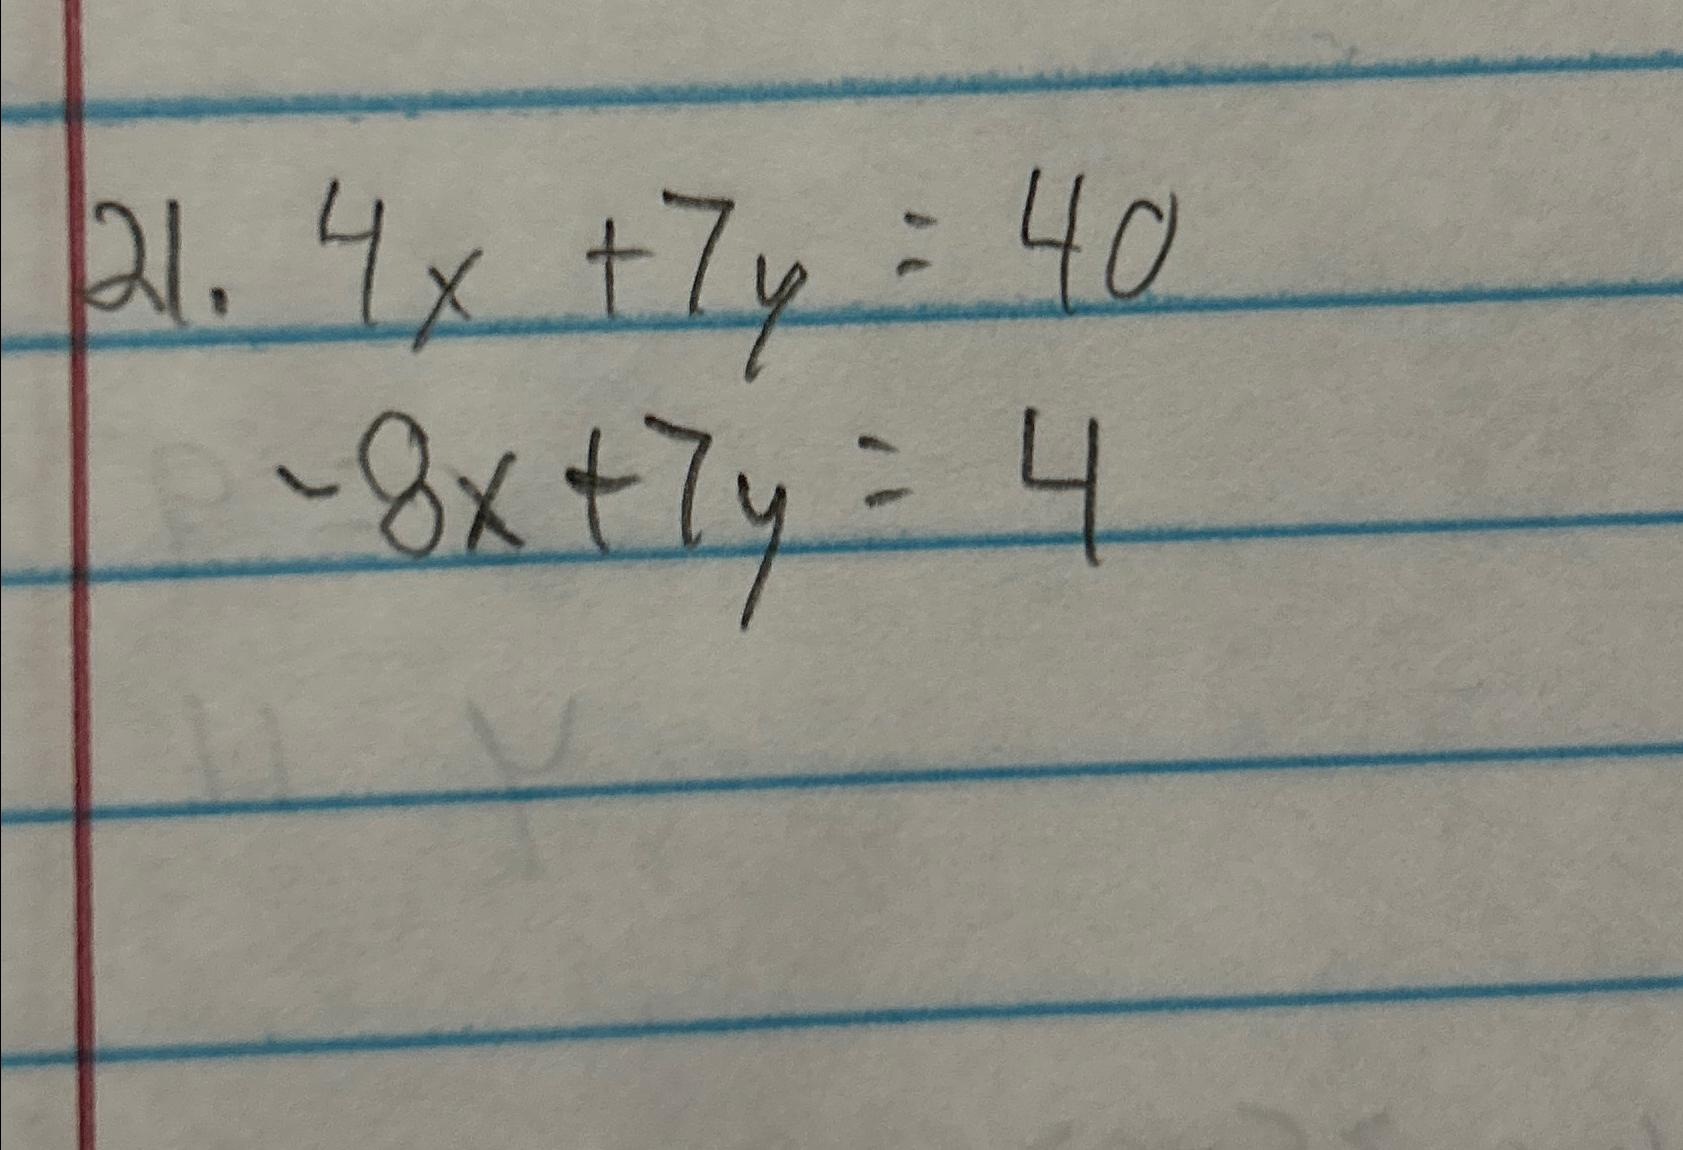 21. 4x + 7y = 40
-8x + 7y = 4